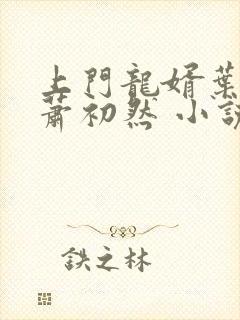 上門龍婿葉
蕭初然 小說
鉄之林